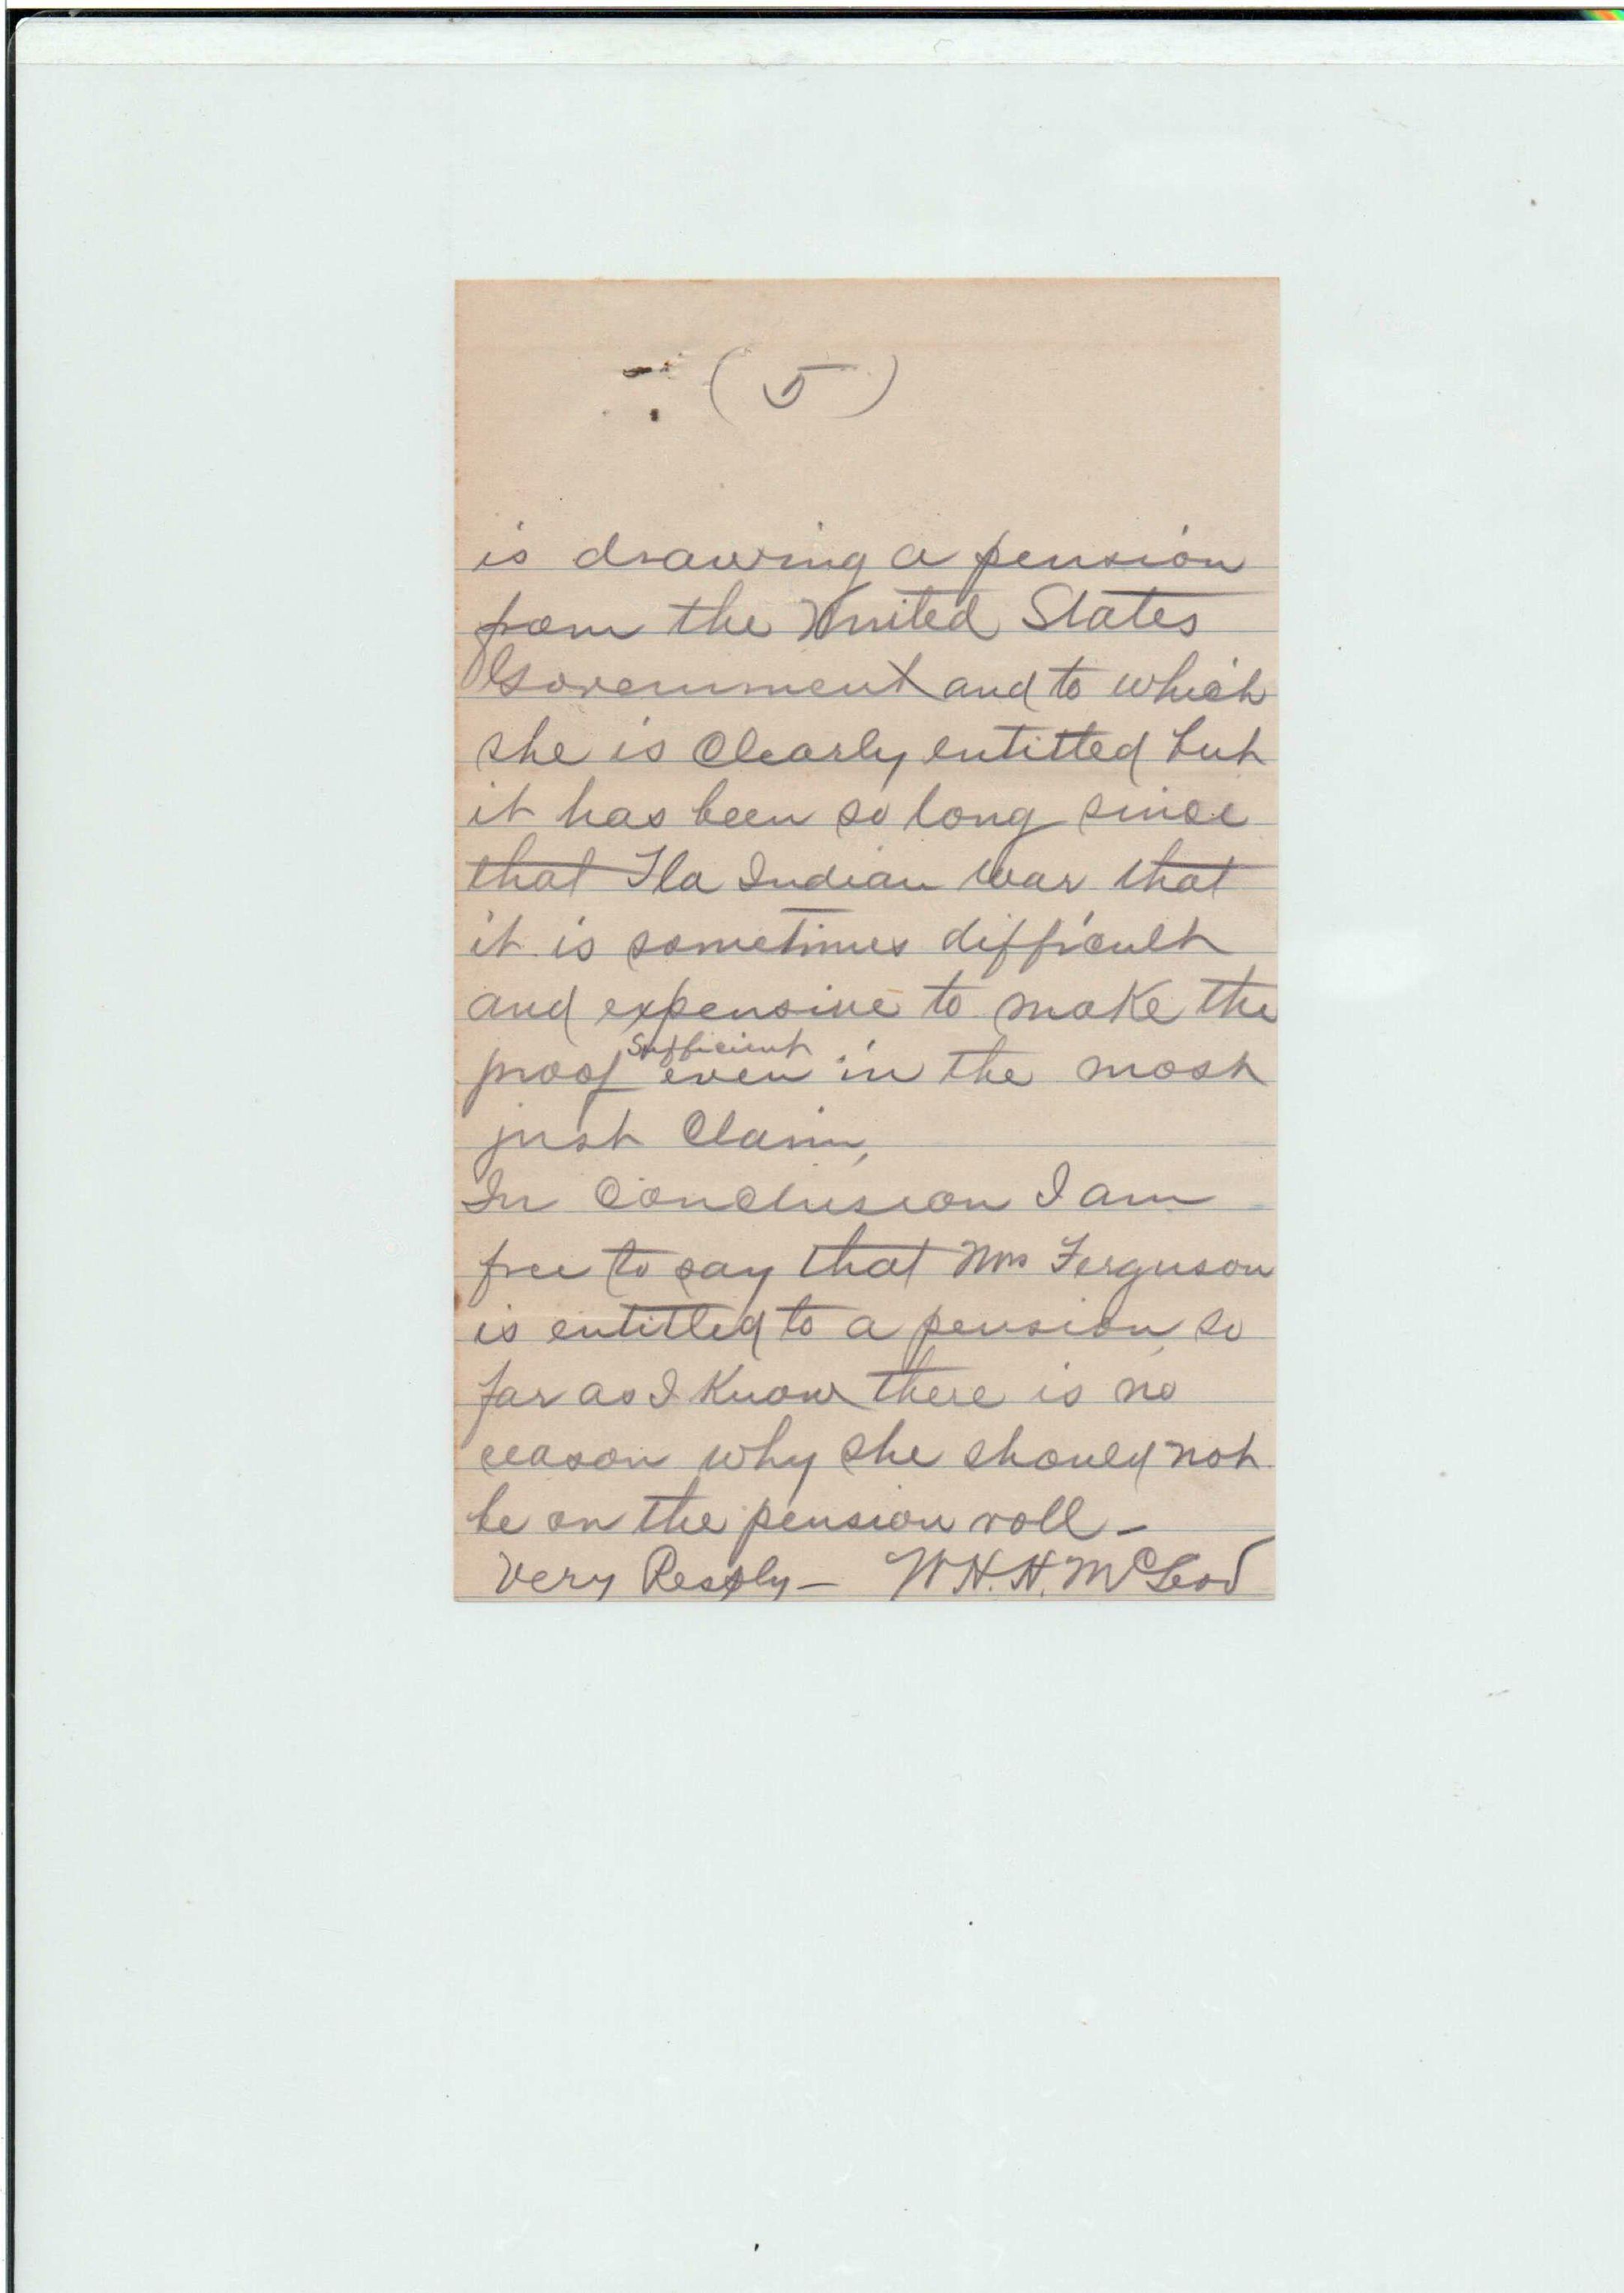 (5)
is drawing a pension
from the United States
Government and to which
she is Clearly entitled but
it has been so long since
that Fla Indian war that
it is sometimes difficult
and expensive to make the
Sufficient
proof even in the most
just Claim,
In Conclusion I am
free to say that Mrs Ferguson
is entitled to a pension, so
far as I Know there is no
reason why she should not
be on the pension roll -
Very Resply - W H. H. McLeod